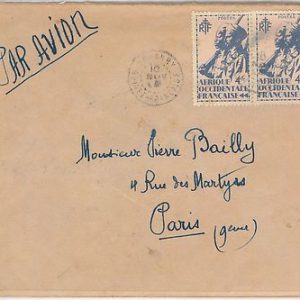 PAR AVION
RF POSTES
AFRIQUE 4F
OCCIDENTALE
FRANÇAISE
AFRIQUE
OCCIDENTALE
FRANÇAISE
Monsieur Pierre Bailly
4 Rue des Martyrs
Paris (9eme)